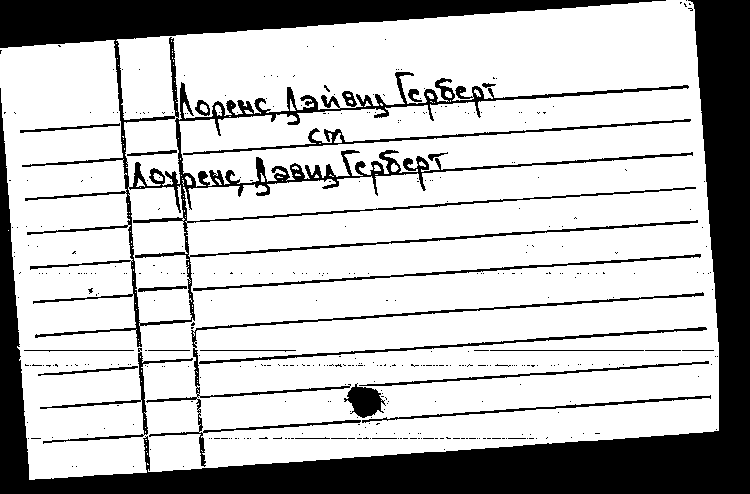 Лоренс, Дэйвид Герберт
см
Лоуренс, Дэвид Герберт